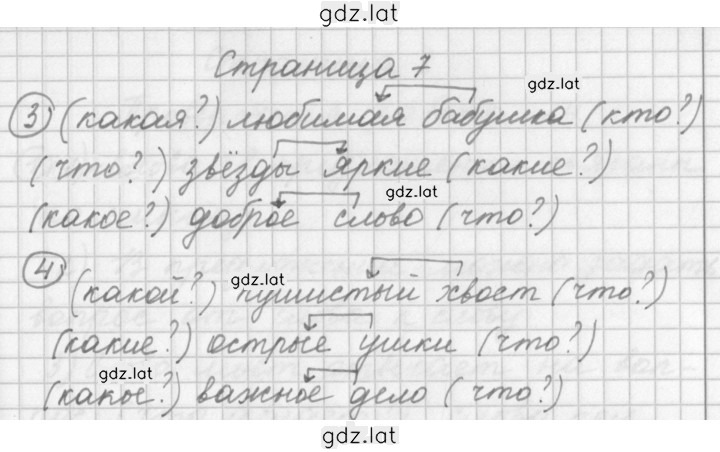 gdz.lat
Страница 7
gdz.lat
3) (какая?) любимая бабушка (кто?)
(что?) звёзды яркие (какие?)
gdz.lat
(какое?) доброе слово (что?)
4) (какой?) пушистый хвост (что?)
gdz.lat
(какие?) острые ушки (что?)
gdz.lat
(какое?) важное дело (что?)
gdz.lat